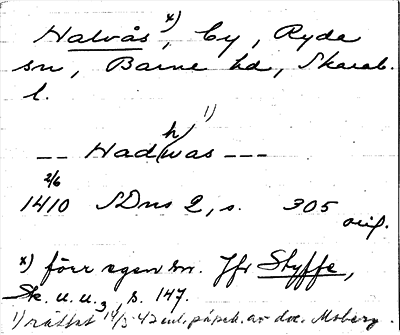 Halvås x), by, Ryda
sn, Barne hd, Skarab.
l.
h/ 1)
-- Hadwas ---
2/6
1410 SDns 2, s. 305
orig.
x) förr egen sn. Jfr Styffe,
Sk. u. u.3, s. 147.
1) rättat 14/3 -47 enl. påpek. av doc. Moberg.